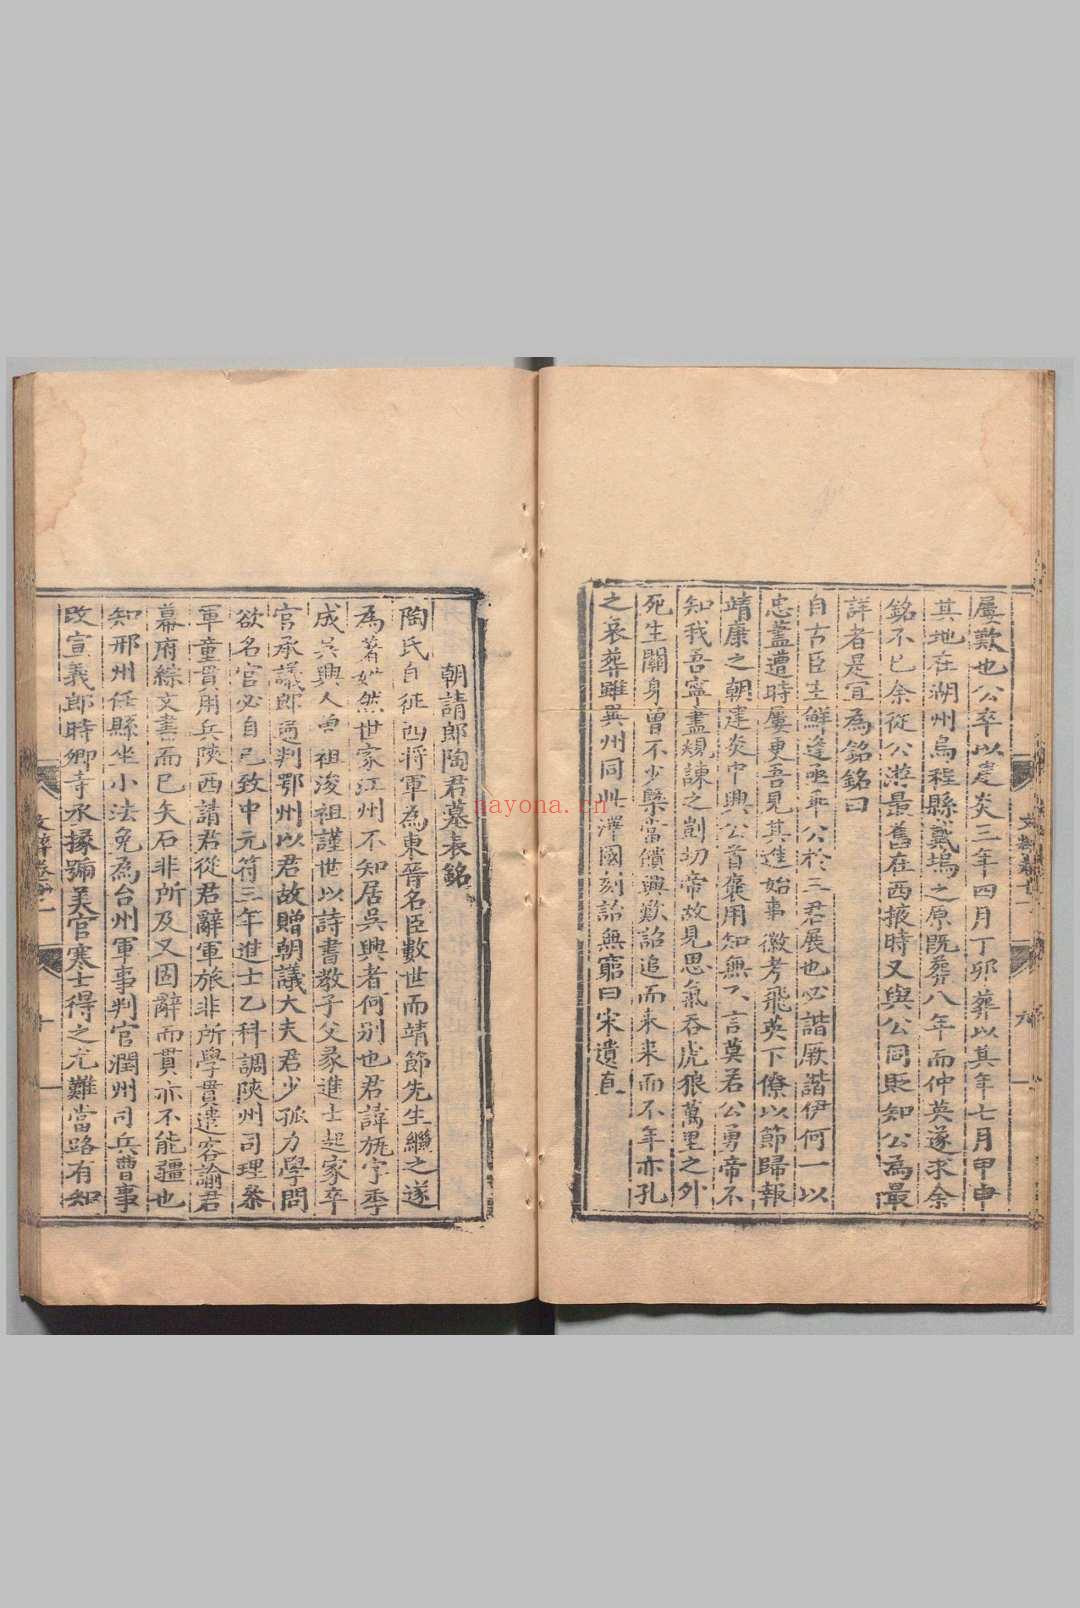 屢歎也公卒以建炎三年四月丁卯葬以其年七月甲申
其地在湖州烏程縣戴塢之原既葬八年而仲英遂求余
銘不已余從公游最舊在西掖時又與公同貶知公為最
詳者是宜為銘銘曰
自古臣主鮮逢亟乖公於三君展也必諧厥諧伊何一以
忠藎遭時屢更吾見其進始事徽考飛英下僚以節歸報
靖康之朝建炎中興公首褒用知無不言莫若公勇帝不
知我吾寧盡規諫之剴切帝故見思氣吞虎狼萬里之外
死生關身曾不少槩當饋興歎詔追而來來而不年亦孔
之哀葬雖異州同此澤國刻詒無窮曰宋遺直
文粹卷十二
九
朝請郎陶君墓表銘
陶氏自征西將軍為東晉名臣數世而靖節先生繼之遂
為著姓然世家江州不知居吳興者何別也君諱旄字季
成吳興人曾祖浚祖謹世以詩書教子父彖進士起家卒
官承議郎通判鄂州以君故贈朝議大夫君少孤力學問
欲名官必自己致中元符三年進士乙科調陝州司理參
軍童貫用兵陝西請君從君辭軍旅非所學貫遣客諭君
幕府綜文書而已矢石非所及又固辭而貫亦不能彊也
知邢州任縣坐小法免為台州軍事判官潤州司兵曹事
改宣義郎時卿寺丞掾號美官寒士得之尤難當路有知
十
nayona.cn